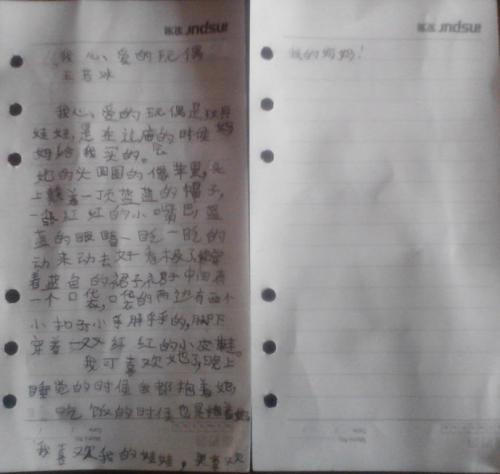 我心、爱的玩偶
王若冰
我心、爱的玩偶是玩具
娃娃,是在过庙的时候妈
妈给我买的。
她的头圆圆的像苹果,头
上戴着一顶蓝蓝的帽子,
一张红红的小嘴巴,蓝
蓝的眼睛一眨一眨的
动来动去好看极了她穿
着蓝色的裙子,裙子中间有
一个口袋,口袋的两边有两个
小扣子小手胖乎乎的,脚下
穿着一双红红的小皮鞋。
我可喜欢她了,晚上
睡觉的时候我都抱着她,
吃饭的时候也是抱着她
我喜欢我的娃娃,更喜欢
我的妈妈!